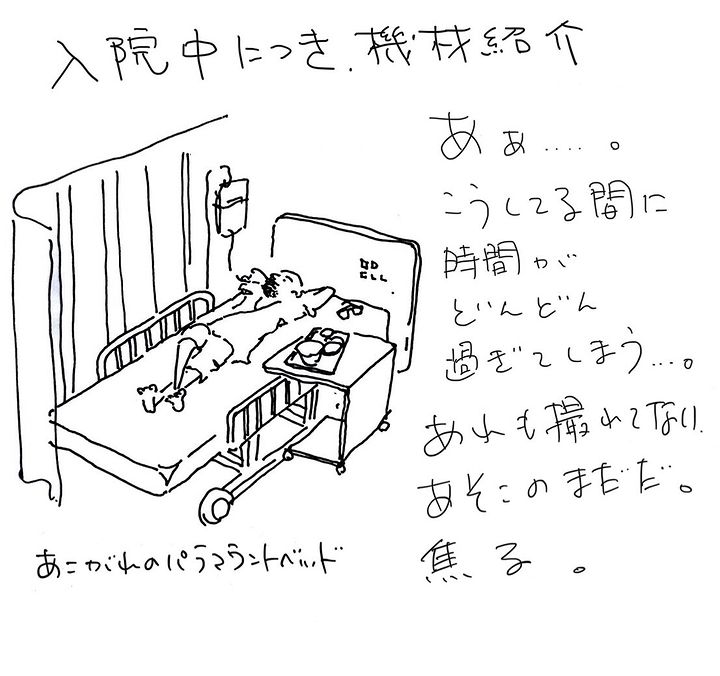 入院中につき.機材紹介
あぁ……。
こうしてる間に
時間が
どんどん
過ぎてしまう…。
あれも撮れてない.
あそこのまだだ。
焦る。
あこがれのパラマウントベッド